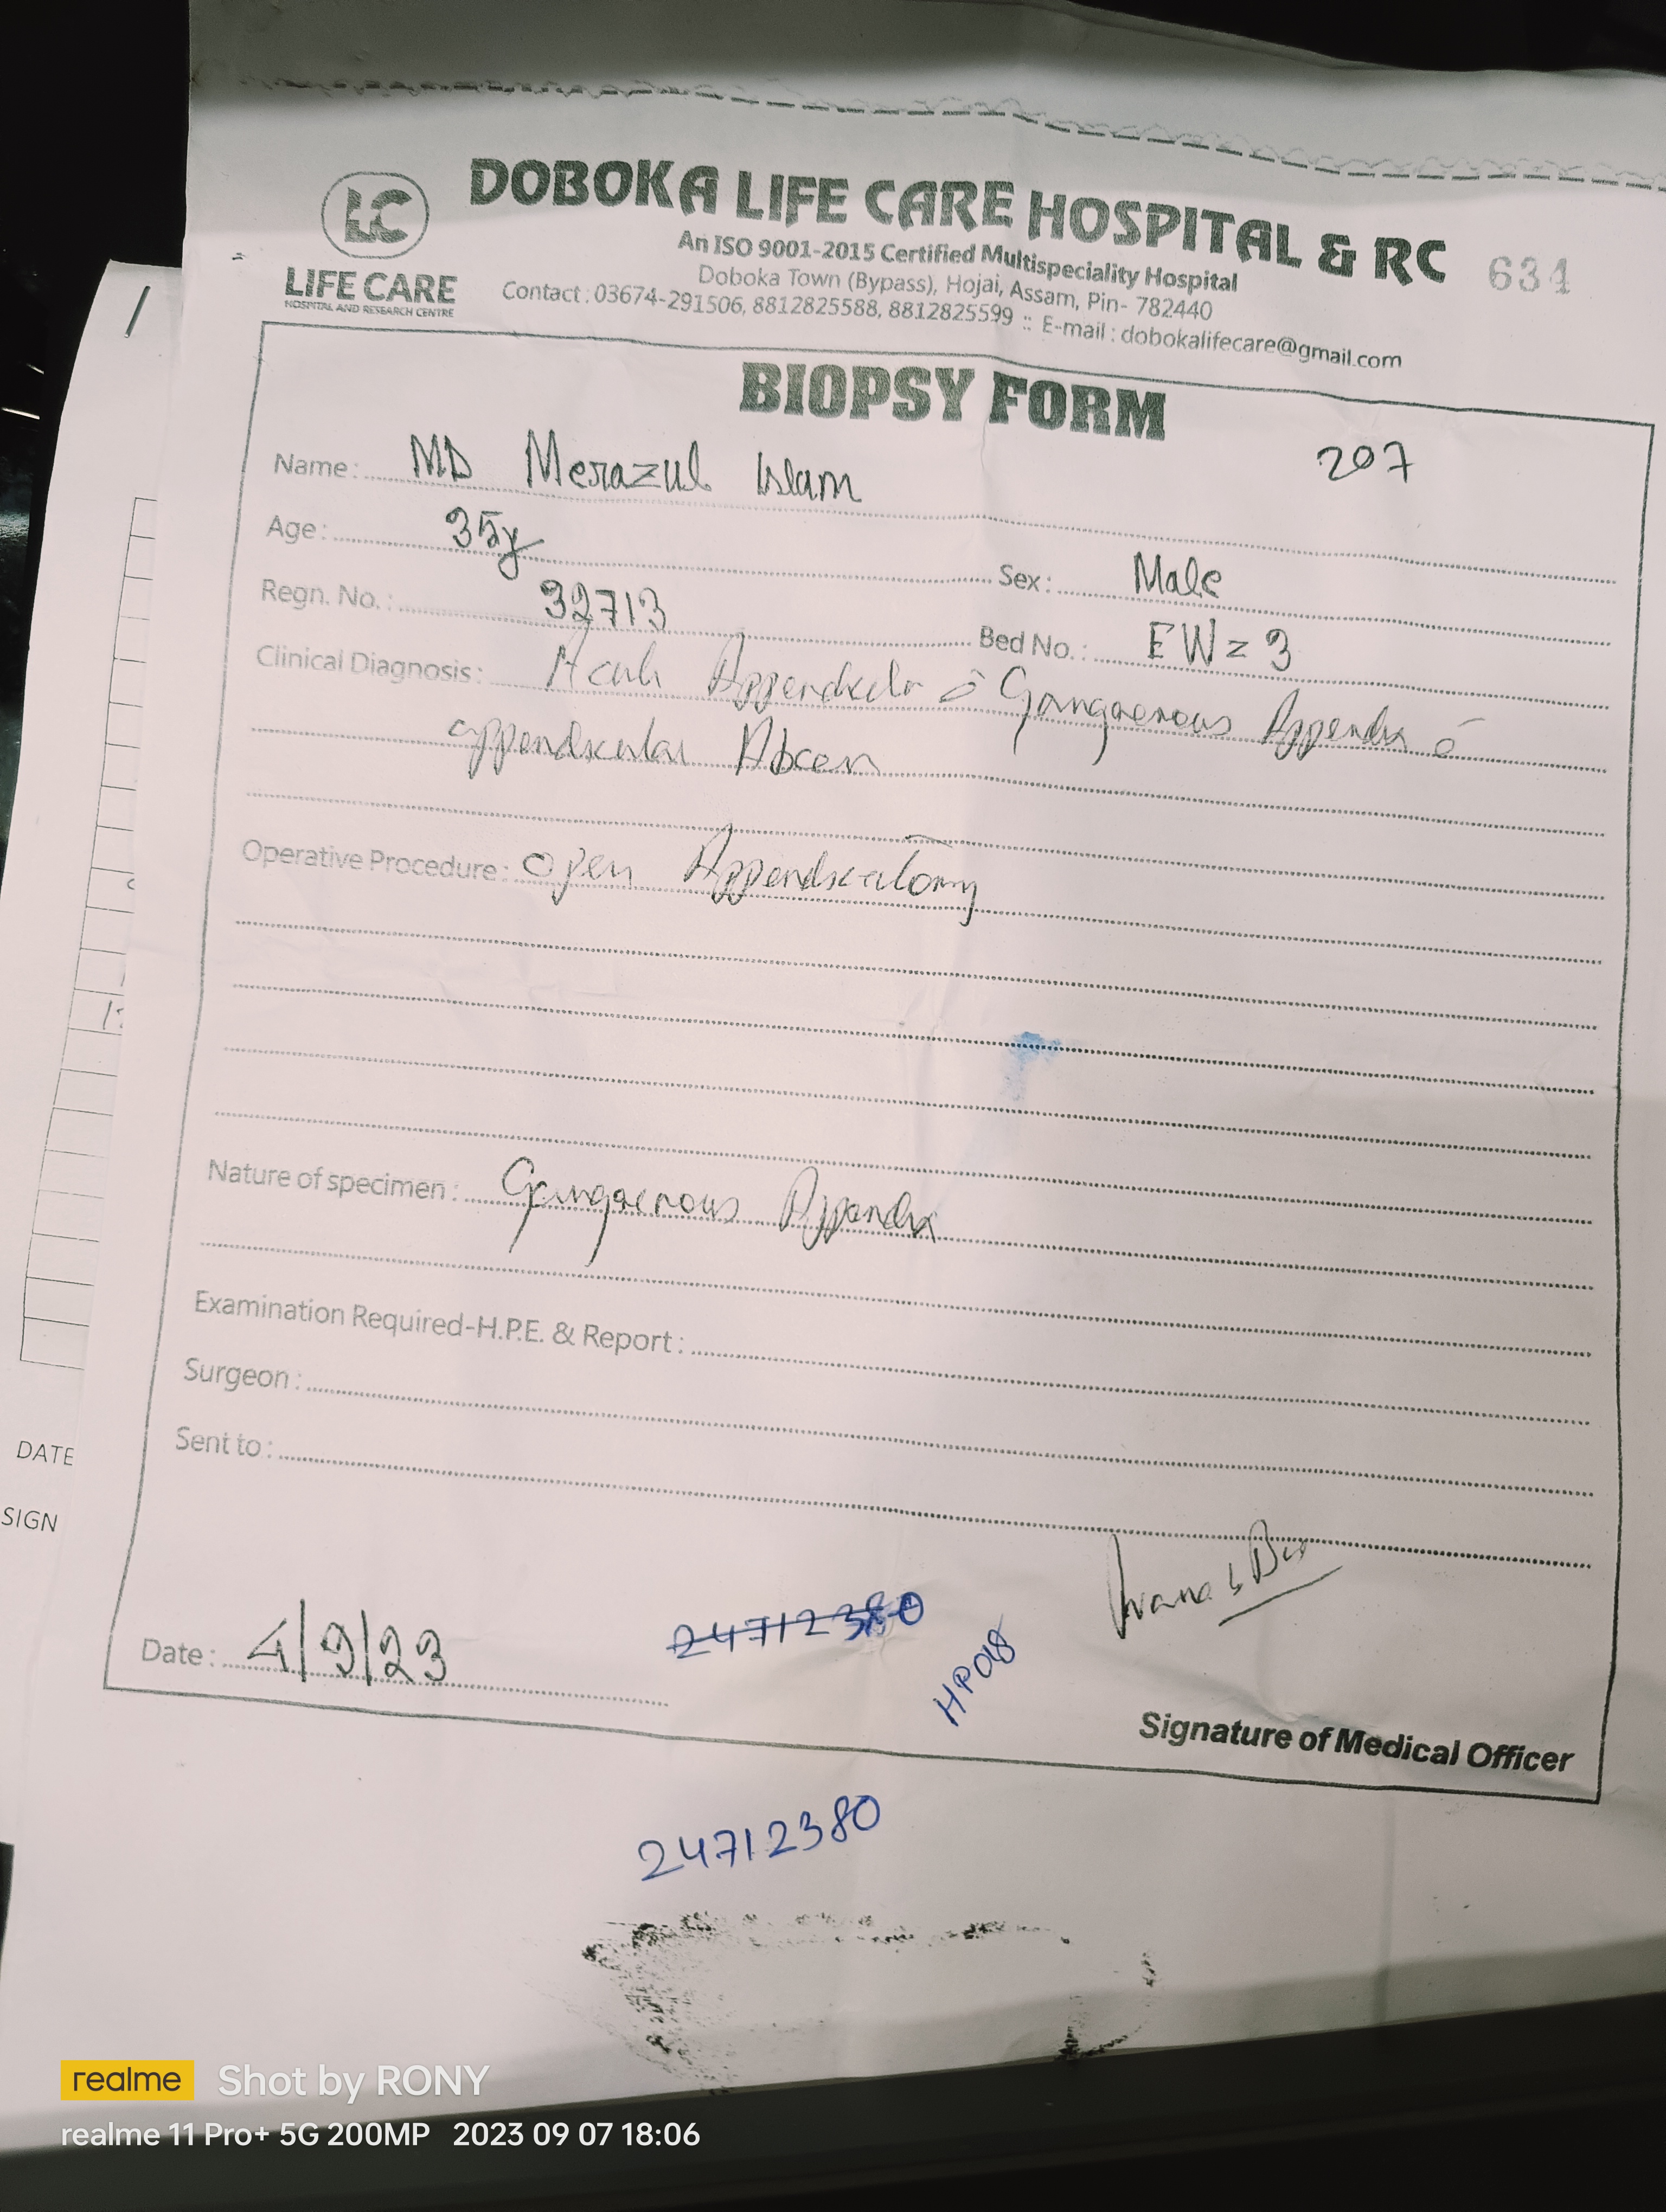 DOBOKA LIFE CARE HOSPITAL & RC
634
LC
LIFE CARE
HOSPITAL AND RESEARCH CENTRE
An ISO 9001-2015 Certified Multispeciality Hospital
Doboka Town (Bypass), Hojai, Assam, Pin- 782440
Contact : 03674-291506, 8812825588, 8812825599 :: E-mail : dobokalifecare@gmail.com
BIOPSY FORM
207
Name : MD Merazul Islam
Age : 35y Sex : Male
Regn. No. : 32713 Bed No. : EW = 3
Clinical Diagnosis : Appendix c̄
appendicular Abcess
Operative Procedure : Open Appendicectomy
Nature of specimen : Gangrenous Appendix
Examination Required-H.P.E. & Report :
Surgeon :
Sent to :
Date : 4/9/23
24712380
HP018
Signature of Medical Officer
24712380
DATE
SIGN
realme Shot by RONY
realme 11 Pro+ 5G 200MP 2023 09 07 18:06